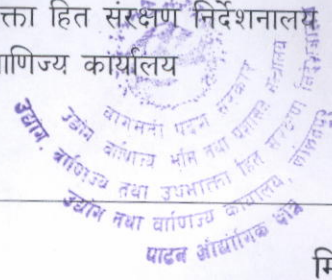 क्ता हित संरक्षण निर्देशनालय
ाणिज्य कार्यालय
बागमती प्रदेश सरकार
उद्योग, वाणिज्य, भूमि तथा प्रशासन मन्त्रालय
उद्योग, वाणिज्य तथा उपभोक्ता हित संरक्षण निर्देशनालय
उद्योग तथा वाणिज्य कार्यालय, ललितपुर
पाटन औद्योगिक क्षेत्र
मि